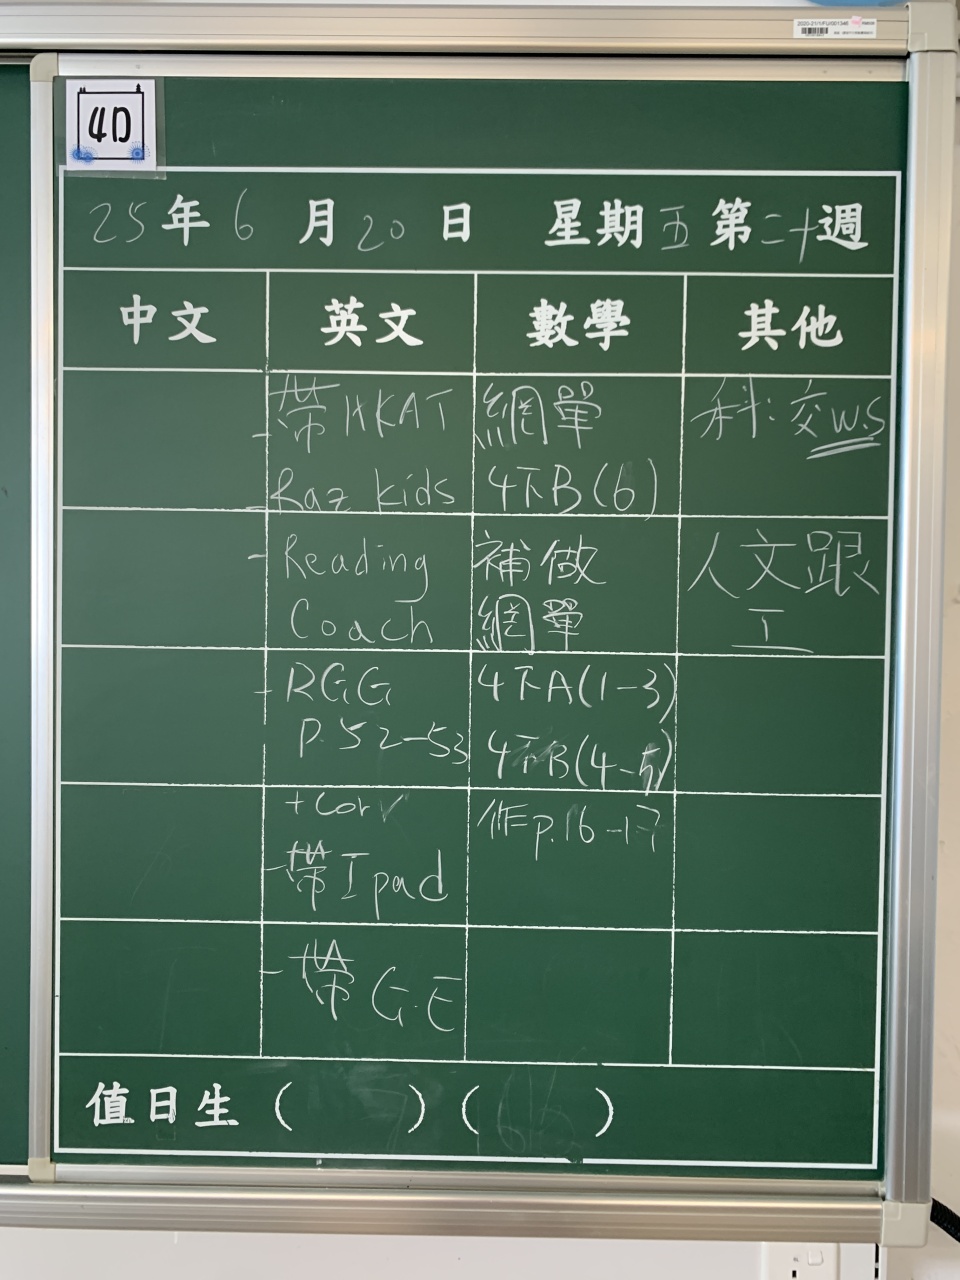 2020-21/1/FU/001346
4D
25年6月20日 星期五第二十週
中文 英文 數學 其他
- 帶 HKAT
- Raz kids
- Reading
Coach
- RGG
P.52-53
+corr
- 帶 Ipad
- 帶 G.E
網單
4下B(6)
補做
網單
4下A(1-3)
4下B(4-5)
作p.16-17
科:交W.S
人文跟
工
值日生 ( ) ( )